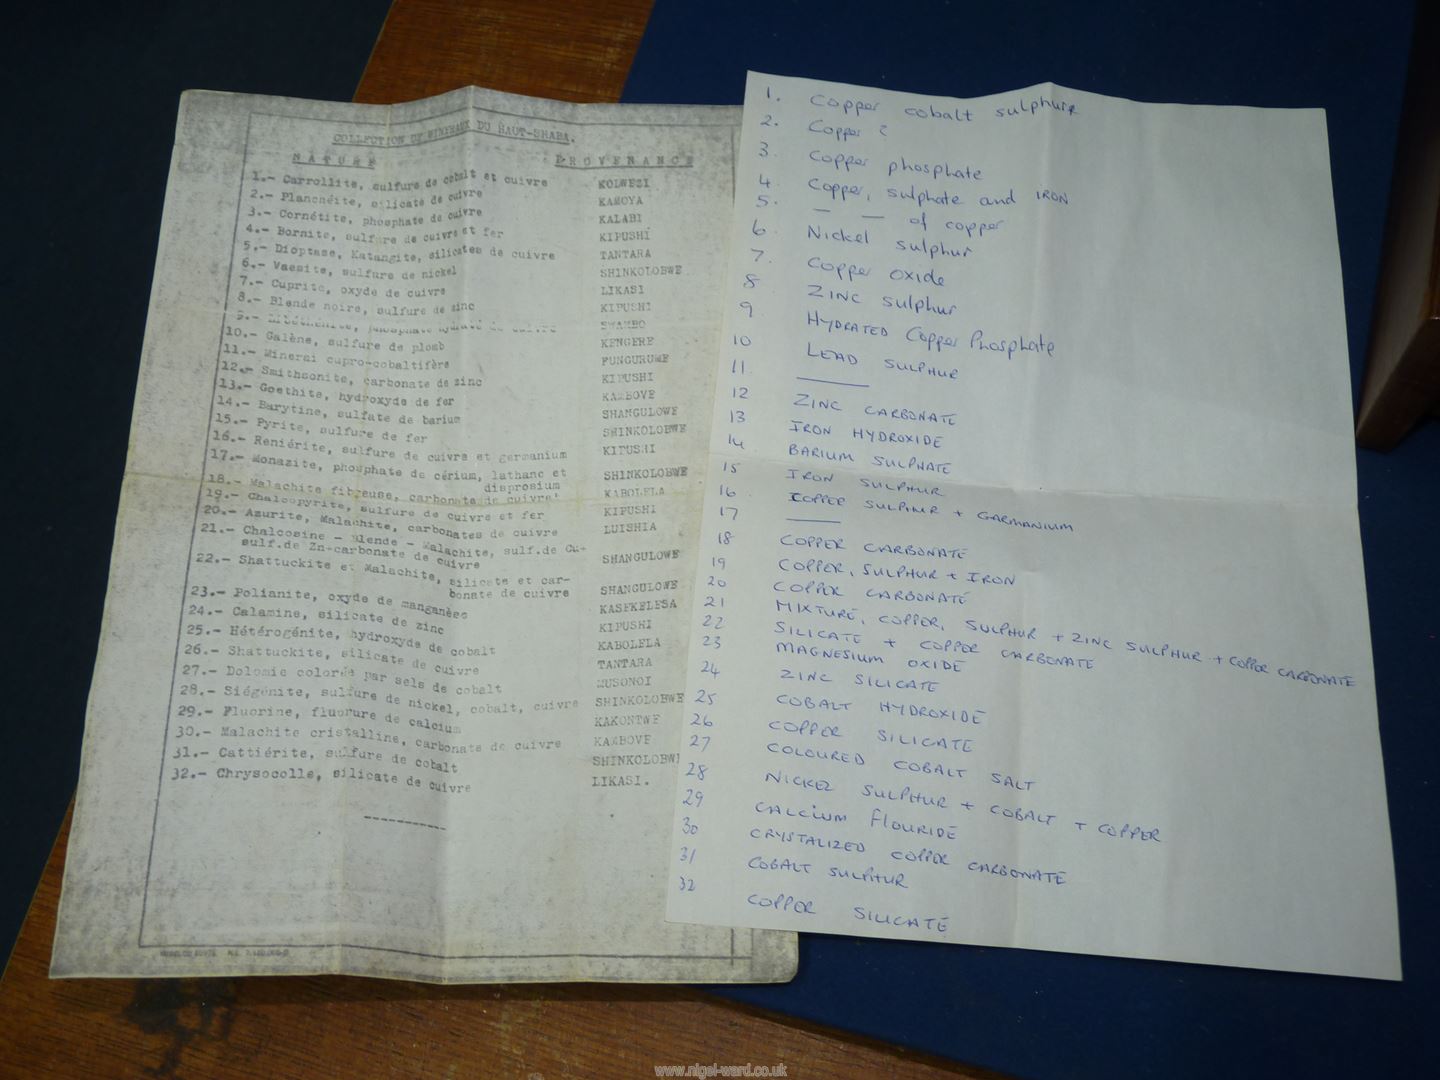 COLLECTION DE MINERAUX DU HAUT-SHABA.
NATURE PROVENANCE
1.- Carrollite, sulfure de cobalt et cuivre KOLWEZI
2.- Planchéite, silicate de cuivre KAMOYA
3.- Cornétite, phosphate de cuivre KALABI
4.- Bornite, sulfure de cuivre et fer KIPUSHI
5.- Dioptase, Katangite, silicates de cuivre TANTARA
6.- Vaesite, sulfure de nickel SHINKOLOBWE
7.- Cuprite, oxyde de cuivre LIKASI
8.- Blende noire, sulfure de zinc KIPUSHI
9.- phosphate de cuivre SWAMBO
10.- Galène, sulfure de plomb KENGERE
11.- Minerai cupro-cobaltifère FUNGURUME
12.- Smithsonite, carbonate de zinc KIPUSHI
13.- Goethite, hydroxyde de fer KAMBOVE
14.- Barytine, sulfate de barium SHANGULOWE
15.- Pyrite, sulfure de fer SHINKOLOBWE
16.- Reniérite, sulfure de cuivre et germanium KIPUSHI
17.- Monazite, phosphate de cérium, lathanc et SHINKOLOBWE
disprosium
18.- Malachite fibreuse, carbonate de cuivre KABOLELA
19.- Chalcopyrite, sulfure de cuivre et fer KIPUSHI
20.- Azurite, Malachite, carbonates de cuivre LUISHIA
21.- Chalcosine - Blende - Malachite, sulf.de Cu-
sulf.de Zn-carbonate de cuivre SHANGULOWE
22.- Shattuckite et Malachite, silicate et car-
bonate de cuivre SHANGULOWE
23.- Polianite, oxyde de manganèse KASEKELESA
24.- Calamine, silicate de zinc KIPUSHI
25.- Hétérogénite, hydroxyde de cobalt KABOLELA
26.- Shattuckite, silicate de cuivre TANTARA
27.- Dolomie colorée par sels de cobalt MUSONOI
28.- Siégénite, sulfure de nickel, cobalt, cuivre SHINKOLOBWE
29.- Fluorine, fluorure de calcium KAKONTWE
30.- Malachite cristalline, carbonate de cuivre KAMBOVE
31.- Cattiérite, sulfure de cobalt SHINKOLOBWE
32.- Chrysocolle, silicate de cuivre LIKASI.
----------
1. Copper cobalt sulphure
2. Copper ?
3. Copper phosphate
4. Copper, sulphate and IRON
5. — — of copper
6. Nickel sulphur
7. Copper oxide
8 ZINC sulphur
9 HYDRATED Copper Phosphate
10 LEAD SULPHUR
11. ———
12 ZINC CARBONATE
13 IRON HYDROXIDE
14 BARIUM SULPHATE
15 IRON SULPHUR
16 COPPER SULPHUR + GARMANIUM
17 ———
18 COPPER CARBONATE
19 COPPER, SULPHUR + IRON
20 COPPER CARBONATE
21 MIXTURE, COPPER, SULPHUR + ZINC SULPHUR + COPPER CARBONATE
22 SILICATE + COPPER CARBONATE
23 MAGNESIUM OXIDE
24 ZINC SILICATE
25 COBALT HYDROXIDE
26 COPPER SILICATE
27 COLOURED COBALT SALT
28 NICKEL SULPHUR + COBALT + COPPER
29 CALCIUM FLOURIDE
30 CRYSTALIZED COPPER CARBONATE
31 COBALT SULPHUR
32 COPPER SILICATE
www.nigel-ward.co.uk